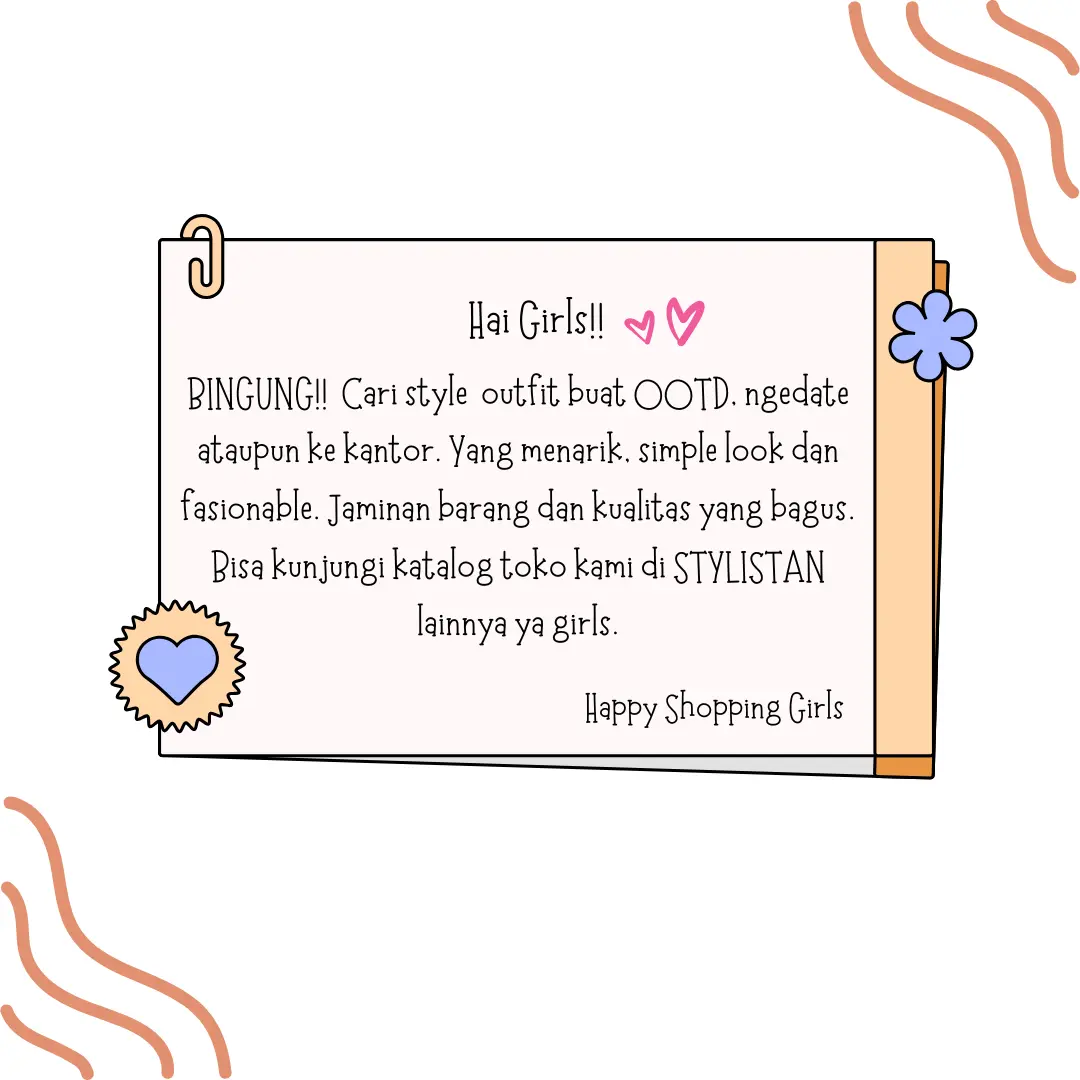 Hai Girls!!
BINGUNG!! Cari style outfit buat OOTD, ngedate
ataupun ke kantor. Yang menarik, simple look dan
fasionable. Jaminan barang dan kualitas yang bagus.
Bisa kunjungi katalog toko kami di STYLISTAN
lainnya ya girls.
Happy Shopping Girls